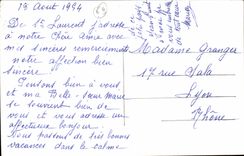 13 Août 1954
De St Laurent j'adresse
à notre Chère Amie avec
mes sincères remerciements
notre affection bien
sincère.
Pensons bien à vous
et ma Belle-Sœur Marie
se souvient bien de
vous et vous adresse un
affectueux bonjour.
Nous passons de très bonnes
vacances dans le calme
Madame Granger
17 rue Sala
Lyon
Rhône